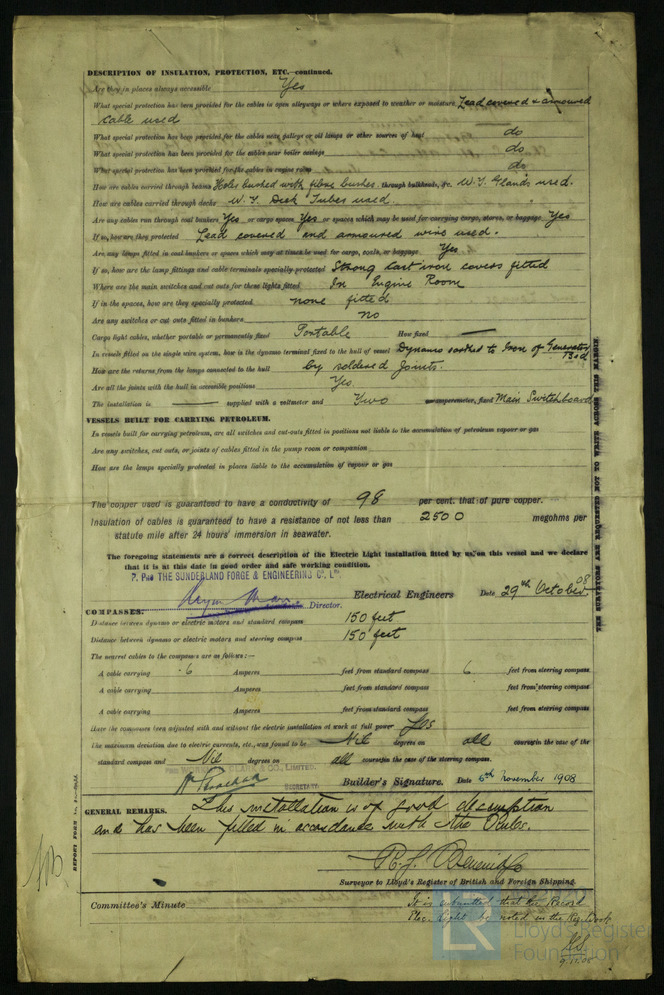 DESCRIPTION OF INSULATION, PROTECTION, ETC.—continued.
Are they in places always accessible Yes
What special protection has been provided for the cables in open alleyways or where exposed to weather or moisture Lead covered & armoured
cable used
What special protection has been provided for the cables near galleys or oil lamps or other sources of heat do
What special protection has been provided for the cables near boiler casings do
What special protection has been provided for the cables in engine room do
How are cables carried through beams Holes bushed with fibre bushes through bulkheads, &c. W.T. Glands used.
How are cables carried through decks W.T. Deck Tubes used
Are any cables run through coal bunkers Yes or cargo spaces Yes or spaces which may be used for carrying cargo, stores, or baggage Yes
If so, how are they protected Lead covered and armoured wire used.
Are any lamps fitted in coal bunkers or spaces which may at times be used for cargo, coals, or baggage Yes
If so, how are the lamp fittings and cable terminals specially protected Strong cast iron covers fitted
Where are the main switches and cut outs for these lights fitted In Engine Room
If in the spaces, how are they specially protected none fitted
Are any switches or cut outs fitted in bunkers no
Cargo light cables, whether portable or permanently fixed Portable How fixed —
In vessels fitted on the single wire system, how is the dynamo terminal fixed to the hull of vessel Dynamo earthed to Iron of Generator Bed
How are the returns from the lamps connected to the hull by soldered joints.
Are all the joints with the hull in accessible positions Yes
The installation is — supplied with a voltmeter and Two amperemeter, fixed Main Switchboard
VESSELS BUILT FOR CARRYING PETROLEUM.
In vessels built for carrying petroleum, are all switches and cut-outs fitted in positions not liable to the accumulation of petroleum vapour or gas
Are any switches, cut outs, or joints of cables fitted in the pump room or companion
How are the lamps specially protected in places liable to the accumulation of vapour or gas
The copper used is guaranteed to have a conductivity of 98 per cent. that of pure copper.
Insulation of cables is guaranteed to have a resistance of not less than 2500 megohms per
statute mile after 24 hours' immersion in seawater.
The foregoing statements are a correct description of the Electric Light installation fitted by us on this vessel and we declare
that it is at this date in good order and safe working condition.
P. Pro THE SUNDERLAND FORGE & ENGINEERING Co. Ltd
Director. Electrical Engineers Date 29th October 08
COMPASSES.
Distance between dynamo or electric motors and standard compass 150 feet
Distance between dynamo or electric motors and steering compass 150 feet
The nearest cables to the compasses are as follows:—
A cable carrying .6 Amperes feet from standard compass 6 feet from steering compass
A cable carrying Amperes feet from standard compass feet from steering compass
A cable carrying Amperes feet from standard compass feet from steering compass
Have the compasses been adjusted with and without the electric installation at work at full power Yes
The maximum deviation due to electric currents, etc., was found to be Nil degrees on all courses in the case of the
standard compass and Nil degrees on all courses in the case of the steering compass.
LIMITED.
SECRETARY. Builder's Signature. Date 6th November 1908
GENERAL REMARKS. This installation is of good description
and has been fitted in accordance with the Rules.
Surveyor to Lloyd's Register of British and Foreign Shipping.
Committee's Minute
It is submitted that the Record
Elec. Light be noted in the Reg. Book
9.11.08
THE SURVEYORS ARE REQUESTED NOT TO WRITE ACROSS THIS MARGIN.
LR
Lloyd's Register
Foundation